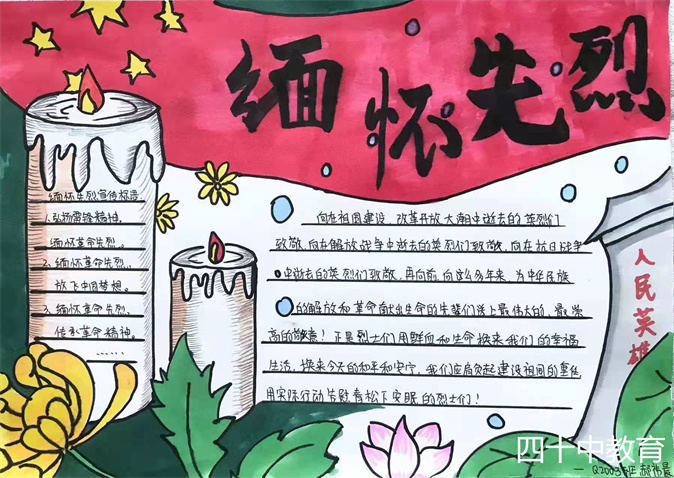 缅怀先烈
缅怀先烈宣传标语
1.弘扬雷锋精神,
缅怀革命先烈。
2.缅怀革命先烈,
放飞中国梦想。
3.缅怀革命先烈,
传承革命精神。
……
向在祖国建设 改革开放大潮中逝去的英烈们
致敬,向在解放战争中逝去的英烈们致敬,向在抗日战争
中逝去的英烈们致敬,再向前,向这么多年来,为中华民族
的解放和革命献出生命的先辈们送上最伟大的、最崇
高的敬意!正是烈士们用鲜血和生命换来我们的幸福
生活,换来今天的和平和安宁,我们应肩负起建设祖国的重任
用实际行动告慰青松下安眠的烈士们!
人民英雄
四十中教育
Q2003班